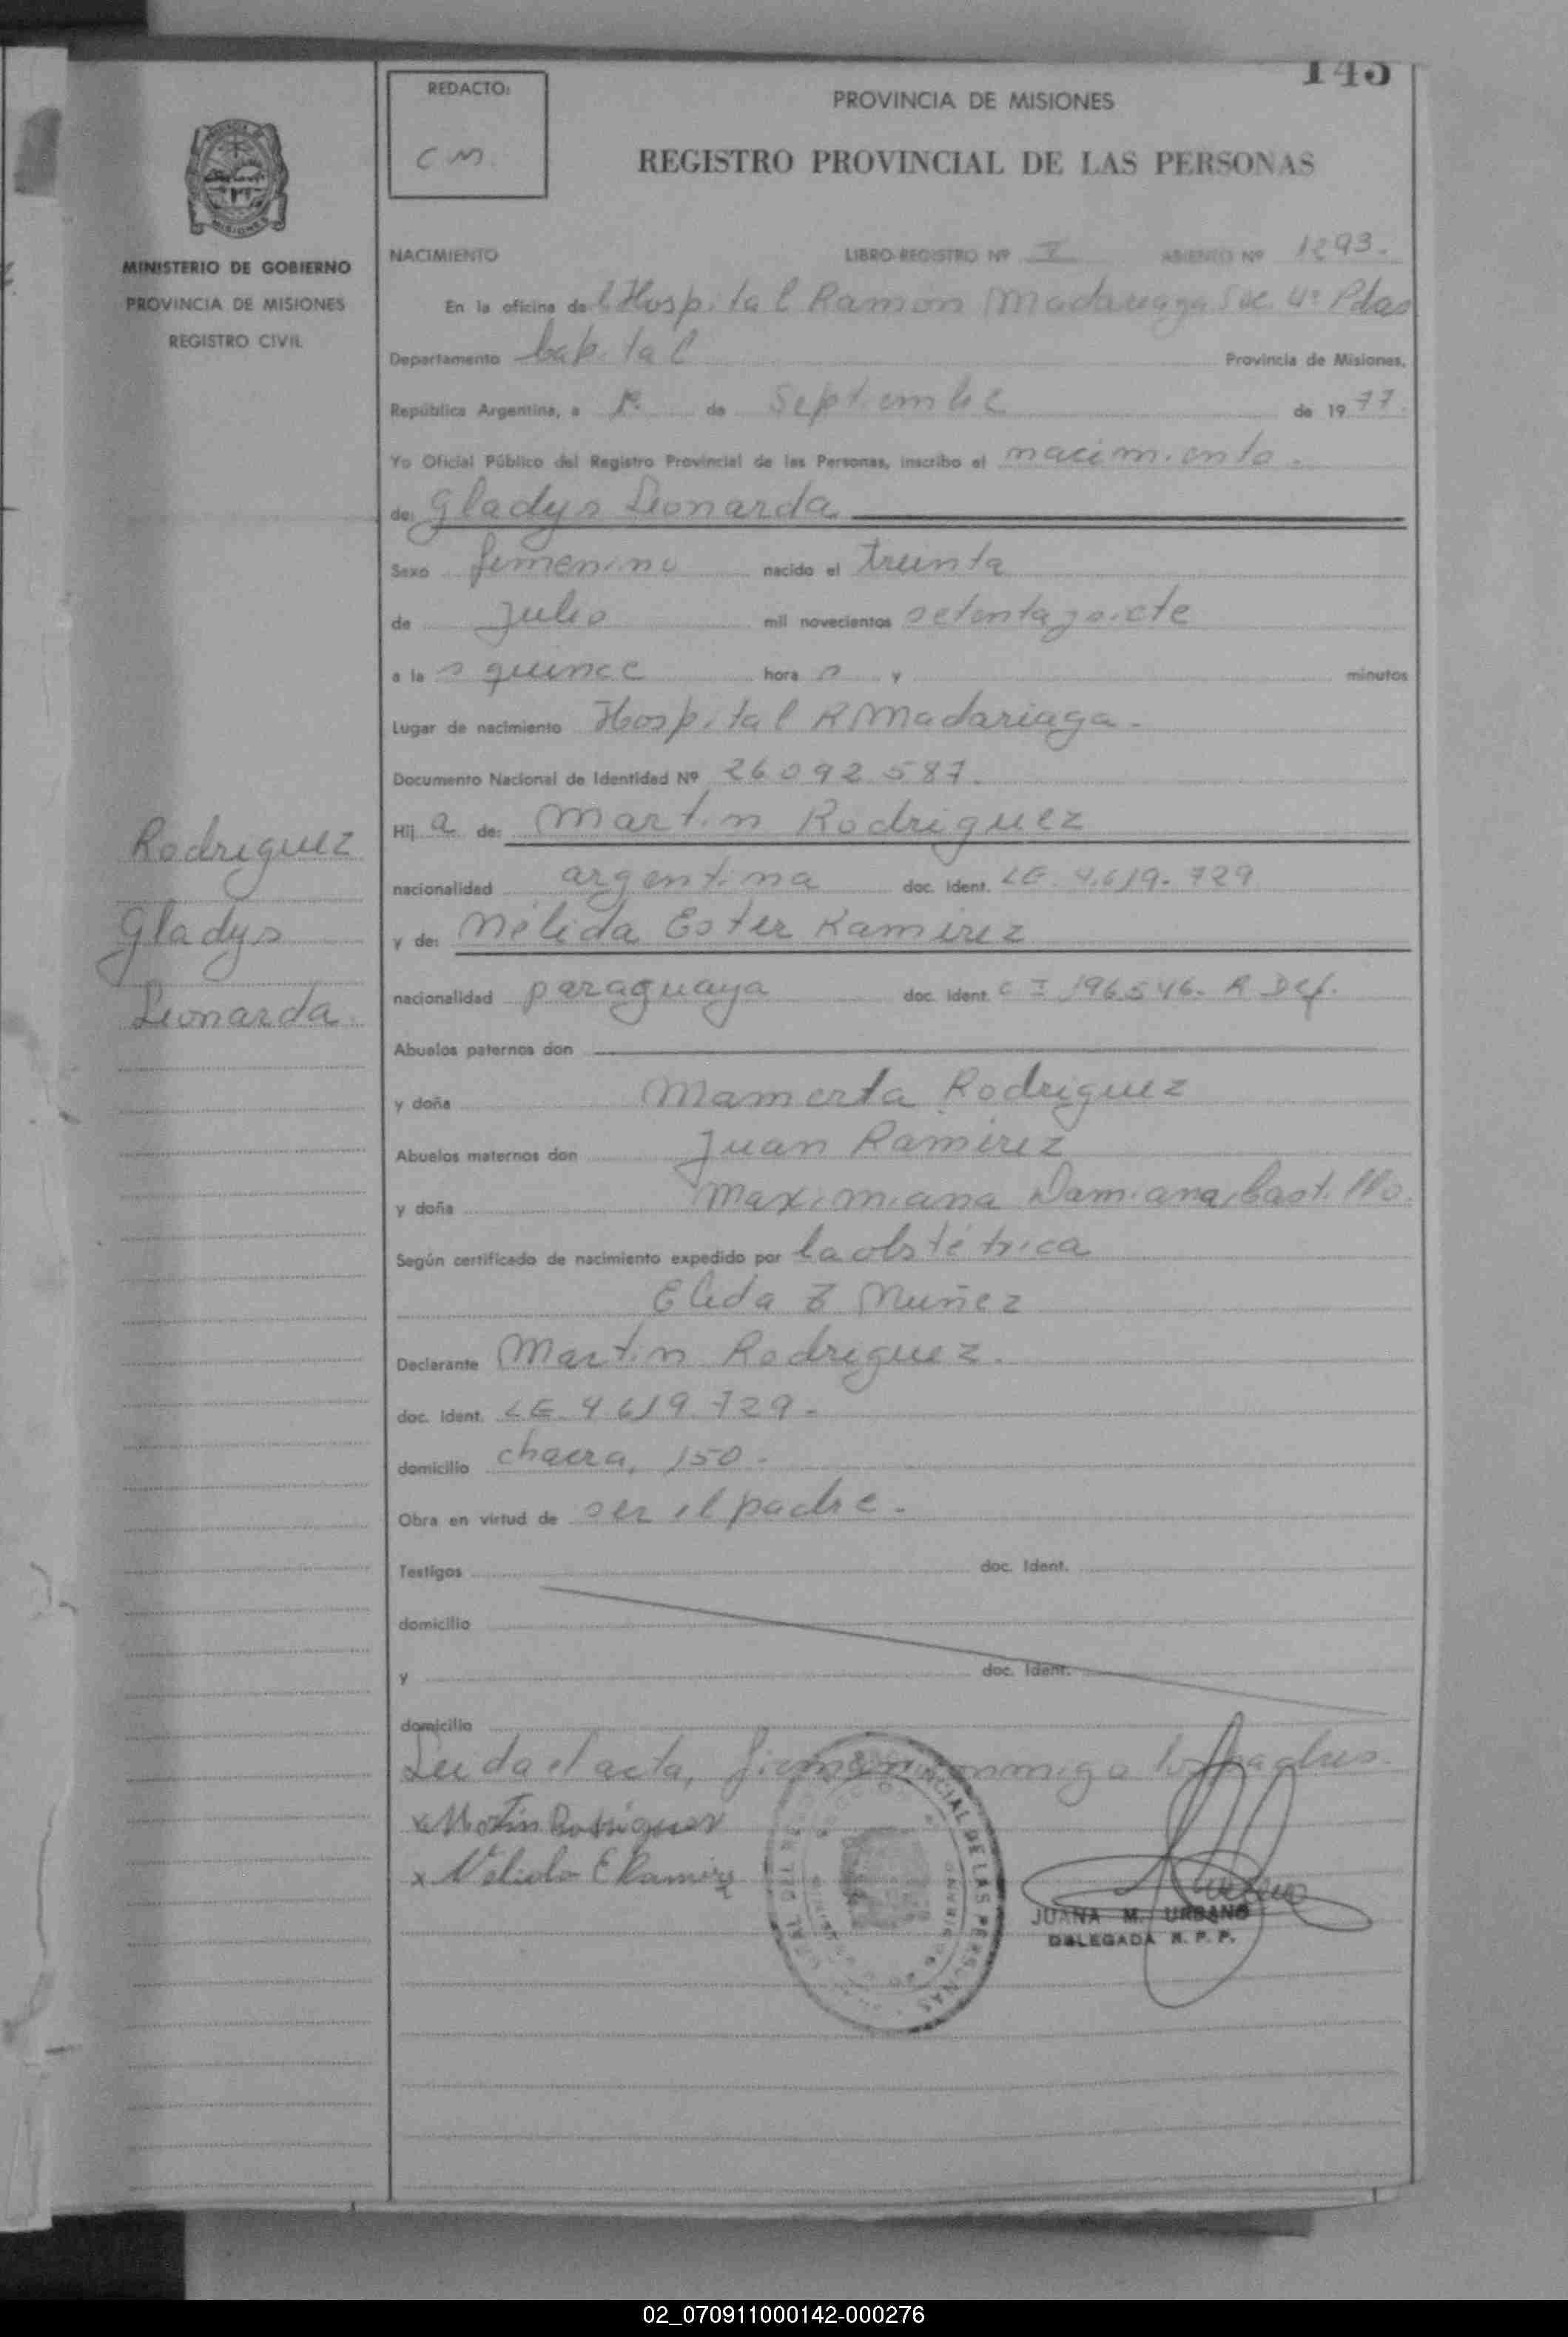 145
REDACTO:
CM
PROVINCIA DE MISIONES
REGISTRO PROVINCIAL DE LAS PERSONAS
MINISTERIO DE GOBIERNO
PROVINCIA DE MISIONES
REGISTRO CIVIL
NACIMIENTO LIBRO-REGISTRO Nº V ASIENTO Nº 1293.
En la oficina del Hospital Ramon Madariaga Sec 4ª Pdas
Departamento Capital Provincia de Misiones,
República Argentina, a 1º de Septiembre de 1977.
Yo Oficial Público del Registro Provincial de las Personas, inscribo el nacimiento.
de: Gladys Leonarda
Sexo femenino nacido el treinta
de Julio mil novecientos setenta y siete
a las quince horas y minutos
Lugar de nacimiento Hospital R Madariaga.
Documento Nacional de Identidad Nº 26.092.587.
Hija de: Martin Rodriguez
nacionalidad argentina doc. Ident. LE. 4.619.729
y de: Nélida Ester Ramirez
nacionalidad paraguaya doc. Ident. C I 196.546. R Def.
Abuelos paternos don
y doña Mamerta Rodriguez
Abuelos maternos don Juan Ramirez
y doña Maximiana Damiana Castillo.
Según certificado de nacimiento expedido por la obstétrica
Elida Z Nuñez
Declarante Martin Rodriguez.
doc. Ident. LE 4.619.729.
domicilio chacra, 150.
Obra en virtud de ser el padre.
Testigos doc. Ident.
domicilio
y doc. Ident.
domicilio
Leida el acta, firman conmigo los padres.
x Martin Rodriguez
x Nelida E Ramirez
JUANA M. URBANO
DELEGADA R. P. P.
Rodriguez
Gladys
Leonarda.
02_070911000142-000276